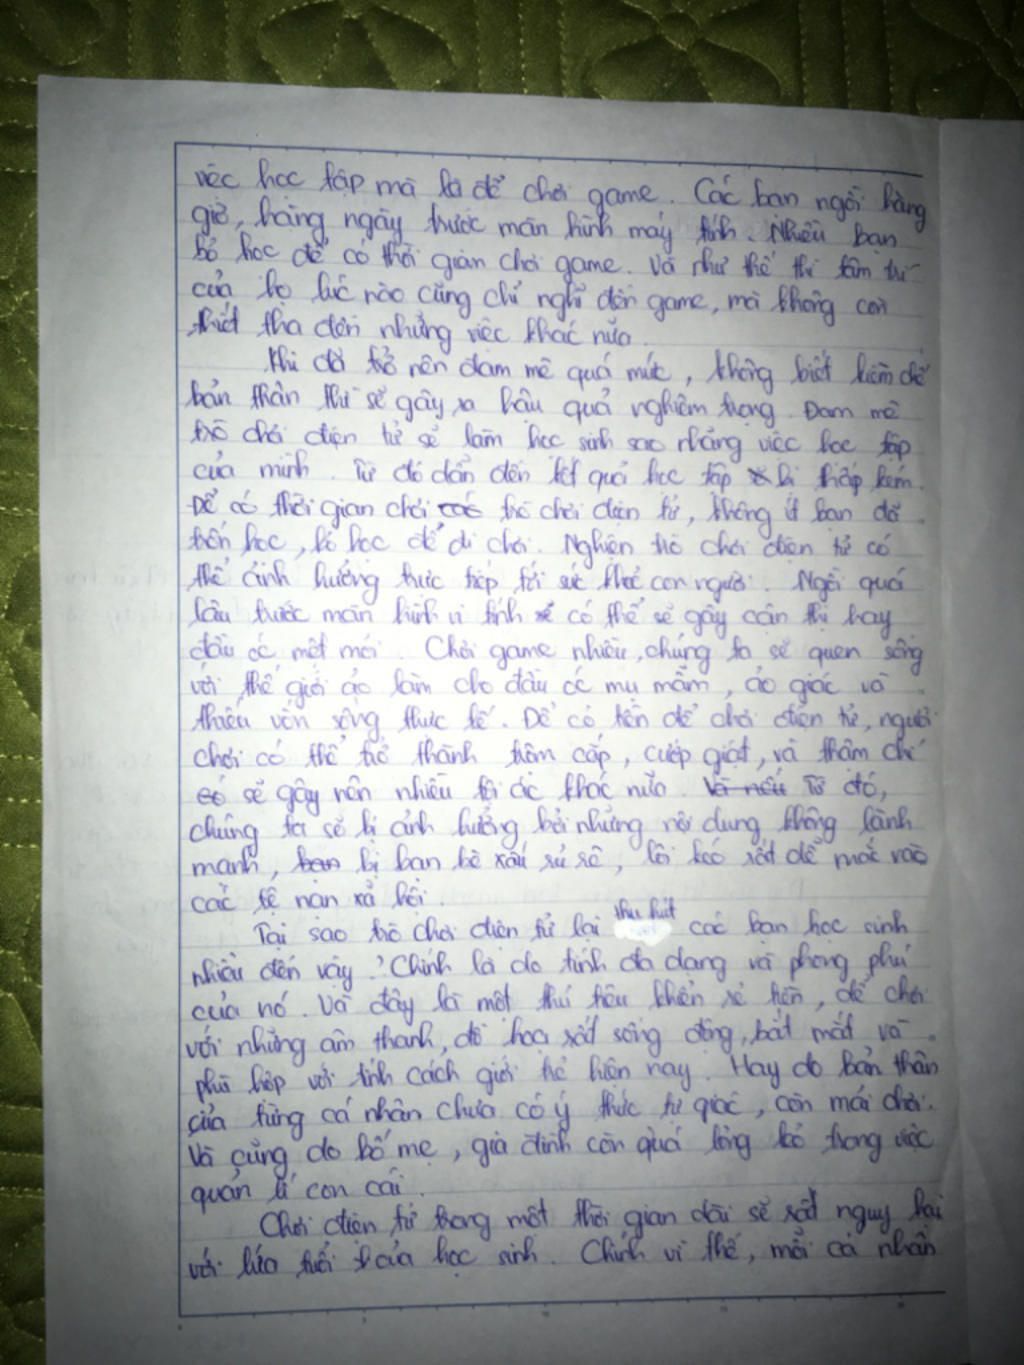 việc học tập mà là để chơi game. Các bạn ngồi hàng
giờ, hàng ngày trước màn hình máy tính. Nhiều bạn
bỏ học để có thời gian chơi game. Và như thế thì tâm trí
của họ lúc nào cũng chỉ nghĩ đến game, mà không còn
thiết tha đến những việc khác nữa.
Khi đã trở nên đam mê quá mức, không biết kiềm chế
bản thân thì sẽ gây ra hậu quả nghiêm trọng. Đam mê
trò chơi điện tử sẽ làm học sinh sao nhãng việc học tập
của mình. Từ đó dẫn đến kết quả học tập bị thấp kém.
Để có thời gian chơi trò chơi điện tử, không ít bạn đã
trốn học, bỏ học để đi chơi. Nghiện trò chơi điện tử có
thể ảnh hưởng trực tiếp tới sức khoẻ con người. Ngồi quá
lâu trước màn hình vi tính có thể sẽ gây cận thị hay
đầu óc mệt mỏi. Chơi game nhiều, chúng ta sẽ quen sống
với thế giới ảo làm cho đầu óc mụ mẫm, ảo giác và
thiếu vốn sống thực tế. Để có tiền để chơi điện tử, người
chơi có thể trở thành trộm cắp, cướp giật, và thậm chí
sẽ gây nên nhiều tội ác khác nữa. Từ đó,
chúng ta sẽ bị ảnh hưởng bởi những nội dung không lành
mạnh, bị bạn bè xấu rủ rê, lôi kéo rất dễ mắc vào
các tệ nạn xã hội.
Tại sao trò chơi điện tử lại thu hút các bạn học sinh
nhiều đến vậy? Chính là do tính đa dạng và phong phú
của nó. Và đây là một thú tiêu khiển rẻ tiền, dễ chơi
với những âm thanh, đồ hoạ rất sống động, bắt mắt và
phù hợp với tính cách giới trẻ hiện nay. Hay do bản thân
của từng cá nhân chưa có ý thức tự giác, còn mải chơi.
Và cũng do bố mẹ, gia đình còn quá lỏng lẻo trong việc
quản lí con cái.
Chơi điện tử trong một thời gian dài sẽ rất nguy hại
với lứa tuổi của học sinh. Chính vì thế, mỗi cá nhân